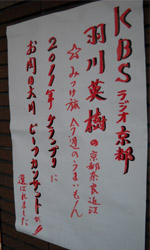 KBS
ラジオ京都
羽川英樹の京都奈良近江
☆みつけ旅 今週のうまいもん
2011年グランプリに
お肉の大川ビーフカツサンドが!!
選ばれました